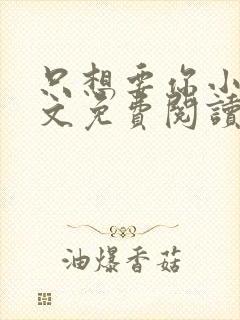 只想要你小
文免費閱讀
油爆香菇